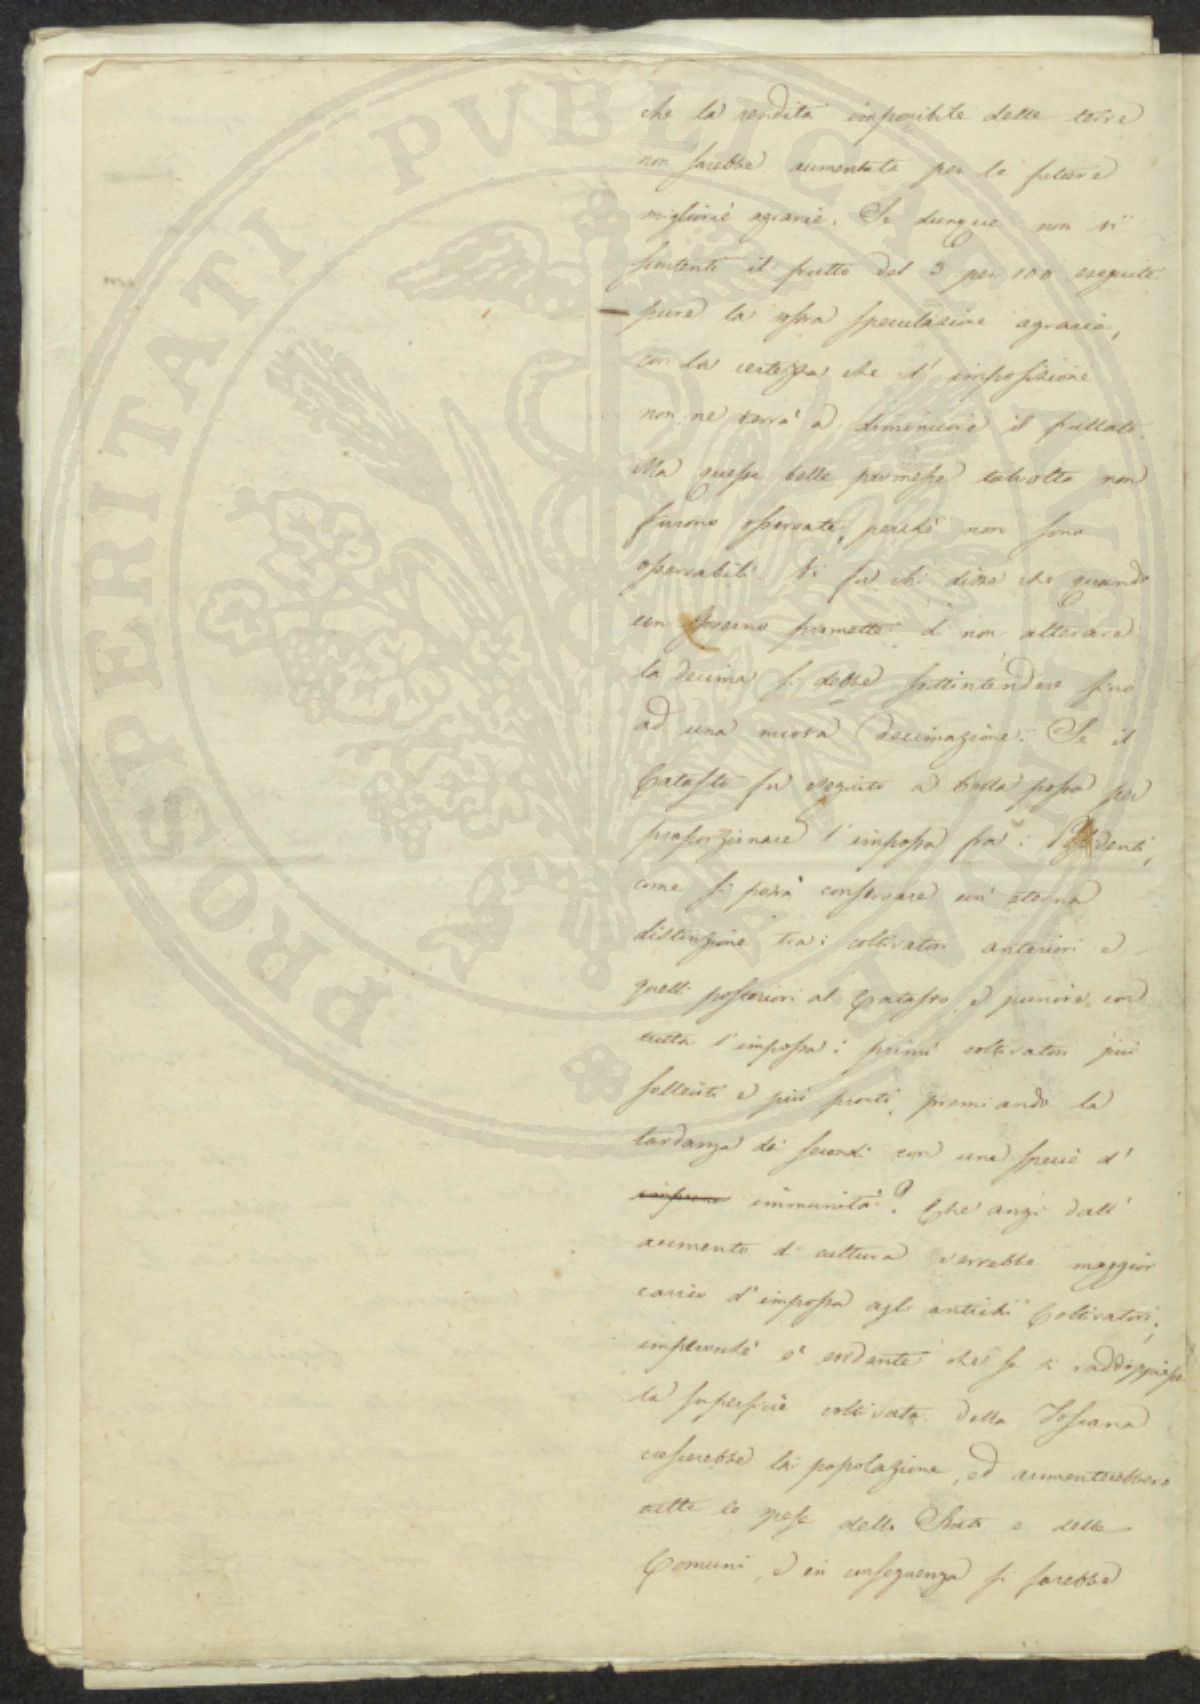 PROSPERITATI PUBLICAE
che la rendita imponibile delle terre
non sarebbe aumentata per le future
migliorie agrarie. Se dunque non vi
contenta il frutto del 3 per 100 eseguite
pure la vostra speculazione agraria,
con la certezza che l' imposizione
non ne verrà a diminuire il fruttato.
Ma queste belle promesse talvolta non
furono osservate, perchè non sono
osservabili. Vi fu chi disse che quando
un Governo promette di non alterare
la decima si debbe sottintendere fino
ad una nuova decimazione. Se il
Catasto fu eseguito a bella posta per
proporzionare l' imposta fra i Possidenti,
come si potrà conservare un' eterna
distinzione tra i coltivatori anteriori e
quelli posteriori al Catasto, e punire con
tutta l' imposta i primi coltivatori più
solleciti e più pronti, premiando la
tardanza dei secondi con una specie d'
immunità? Che anzi dall'
aumento di cultura verrebbe maggior
carico d' imposta agli antichi Coltivatori;
imperocchè è evidente che se si raddoppiasse
la superficie coltivata della Toscana
crescerebbe la popolazione, ed aumenterebbero
tutte le spese dello Stato e delle
Comuni, e in conseguenza si sarebbe